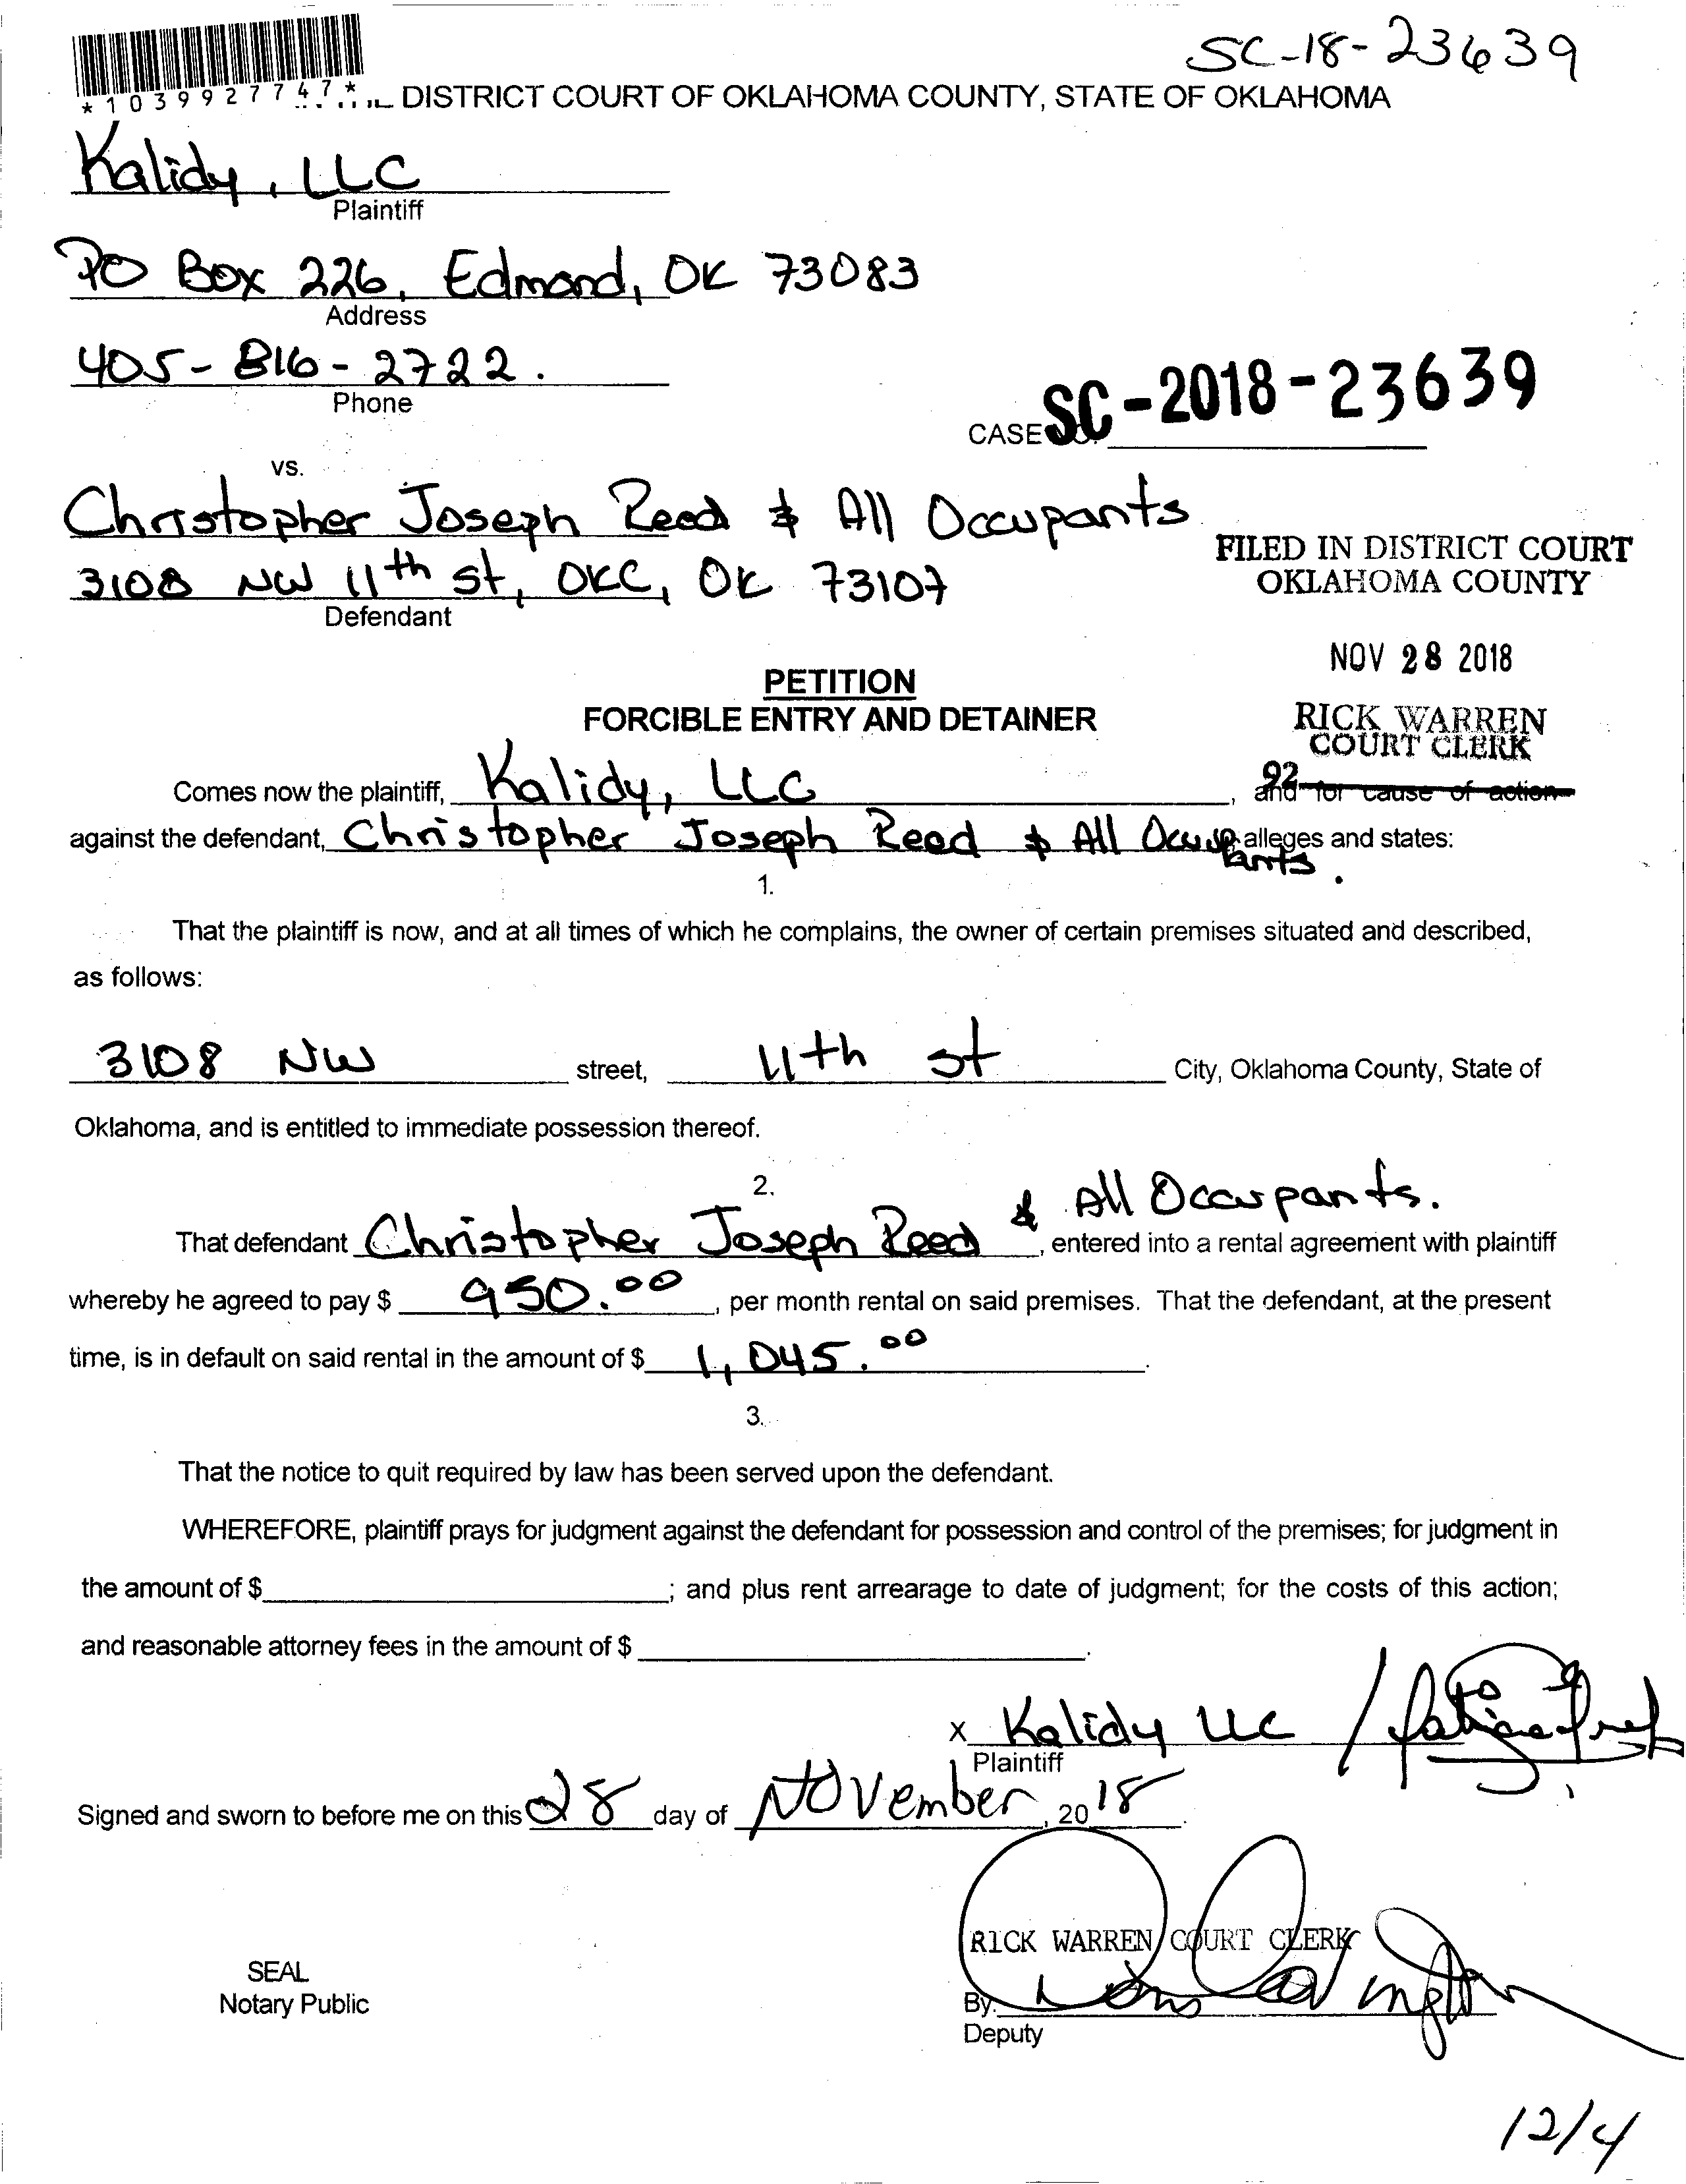 SC-18-23639
*1039927747*
DISTRICT COURT OF OKLAHOMA COUNTY, STATE OF OKLAHOMA
Kalidy, LLC
Plaintiff
PO Box 226, Edmond, OK 73083
Address
405-816-2722.
Phone
CASE NO. SC-2018-23639
vs.
Christopher Joseph Reed & All Occupants
3108 NW 11th st, OKC, OK 73107
Defendant
FILED IN DISTRICT COURT
OKLAHOMA COUNTY
NOV 28 2018
RICK WARREN
COURT CLERK
92
PETITION
FORCIBLE ENTRY AND DETAINER
Comes now the plaintiff, Kalidy, LLC, and for cause of action
against the defendant, Christopher Joseph Reed & All Occupants. alleges and states:
1.
That the plaintiff is now, and at all times of which he complains, the owner of certain premises situated and described,
as follows:
3108 NW street, 11th st City, Oklahoma County, State of
Oklahoma, and is entitled to immediate possession thereof.
2.
That defendant Christopher Joseph Reed & All Occupants., entered into a rental agreement with plaintiff
whereby he agreed to pay $ 950.00, per month rental on said premises. That the defendant, at the present
time, is in default on said rental in the amount of $ 1,045.00.
3.
That the notice to quit required by law has been served upon the defendant.
WHEREFORE, plaintiff prays for judgment against the defendant for possession and control of the premises; for judgment in
the amount of $ ; and plus rent arrearage to date of judgment; for the costs of this action;
and reasonable attorney fees in the amount of $ .
X Kalidy LLC /
Plaintiff
Signed and sworn to before me on this 28 day of November, 2018.
RICK WARREN COURT CLERK
SEAL
Notary Public
By:
Deputy
12/4